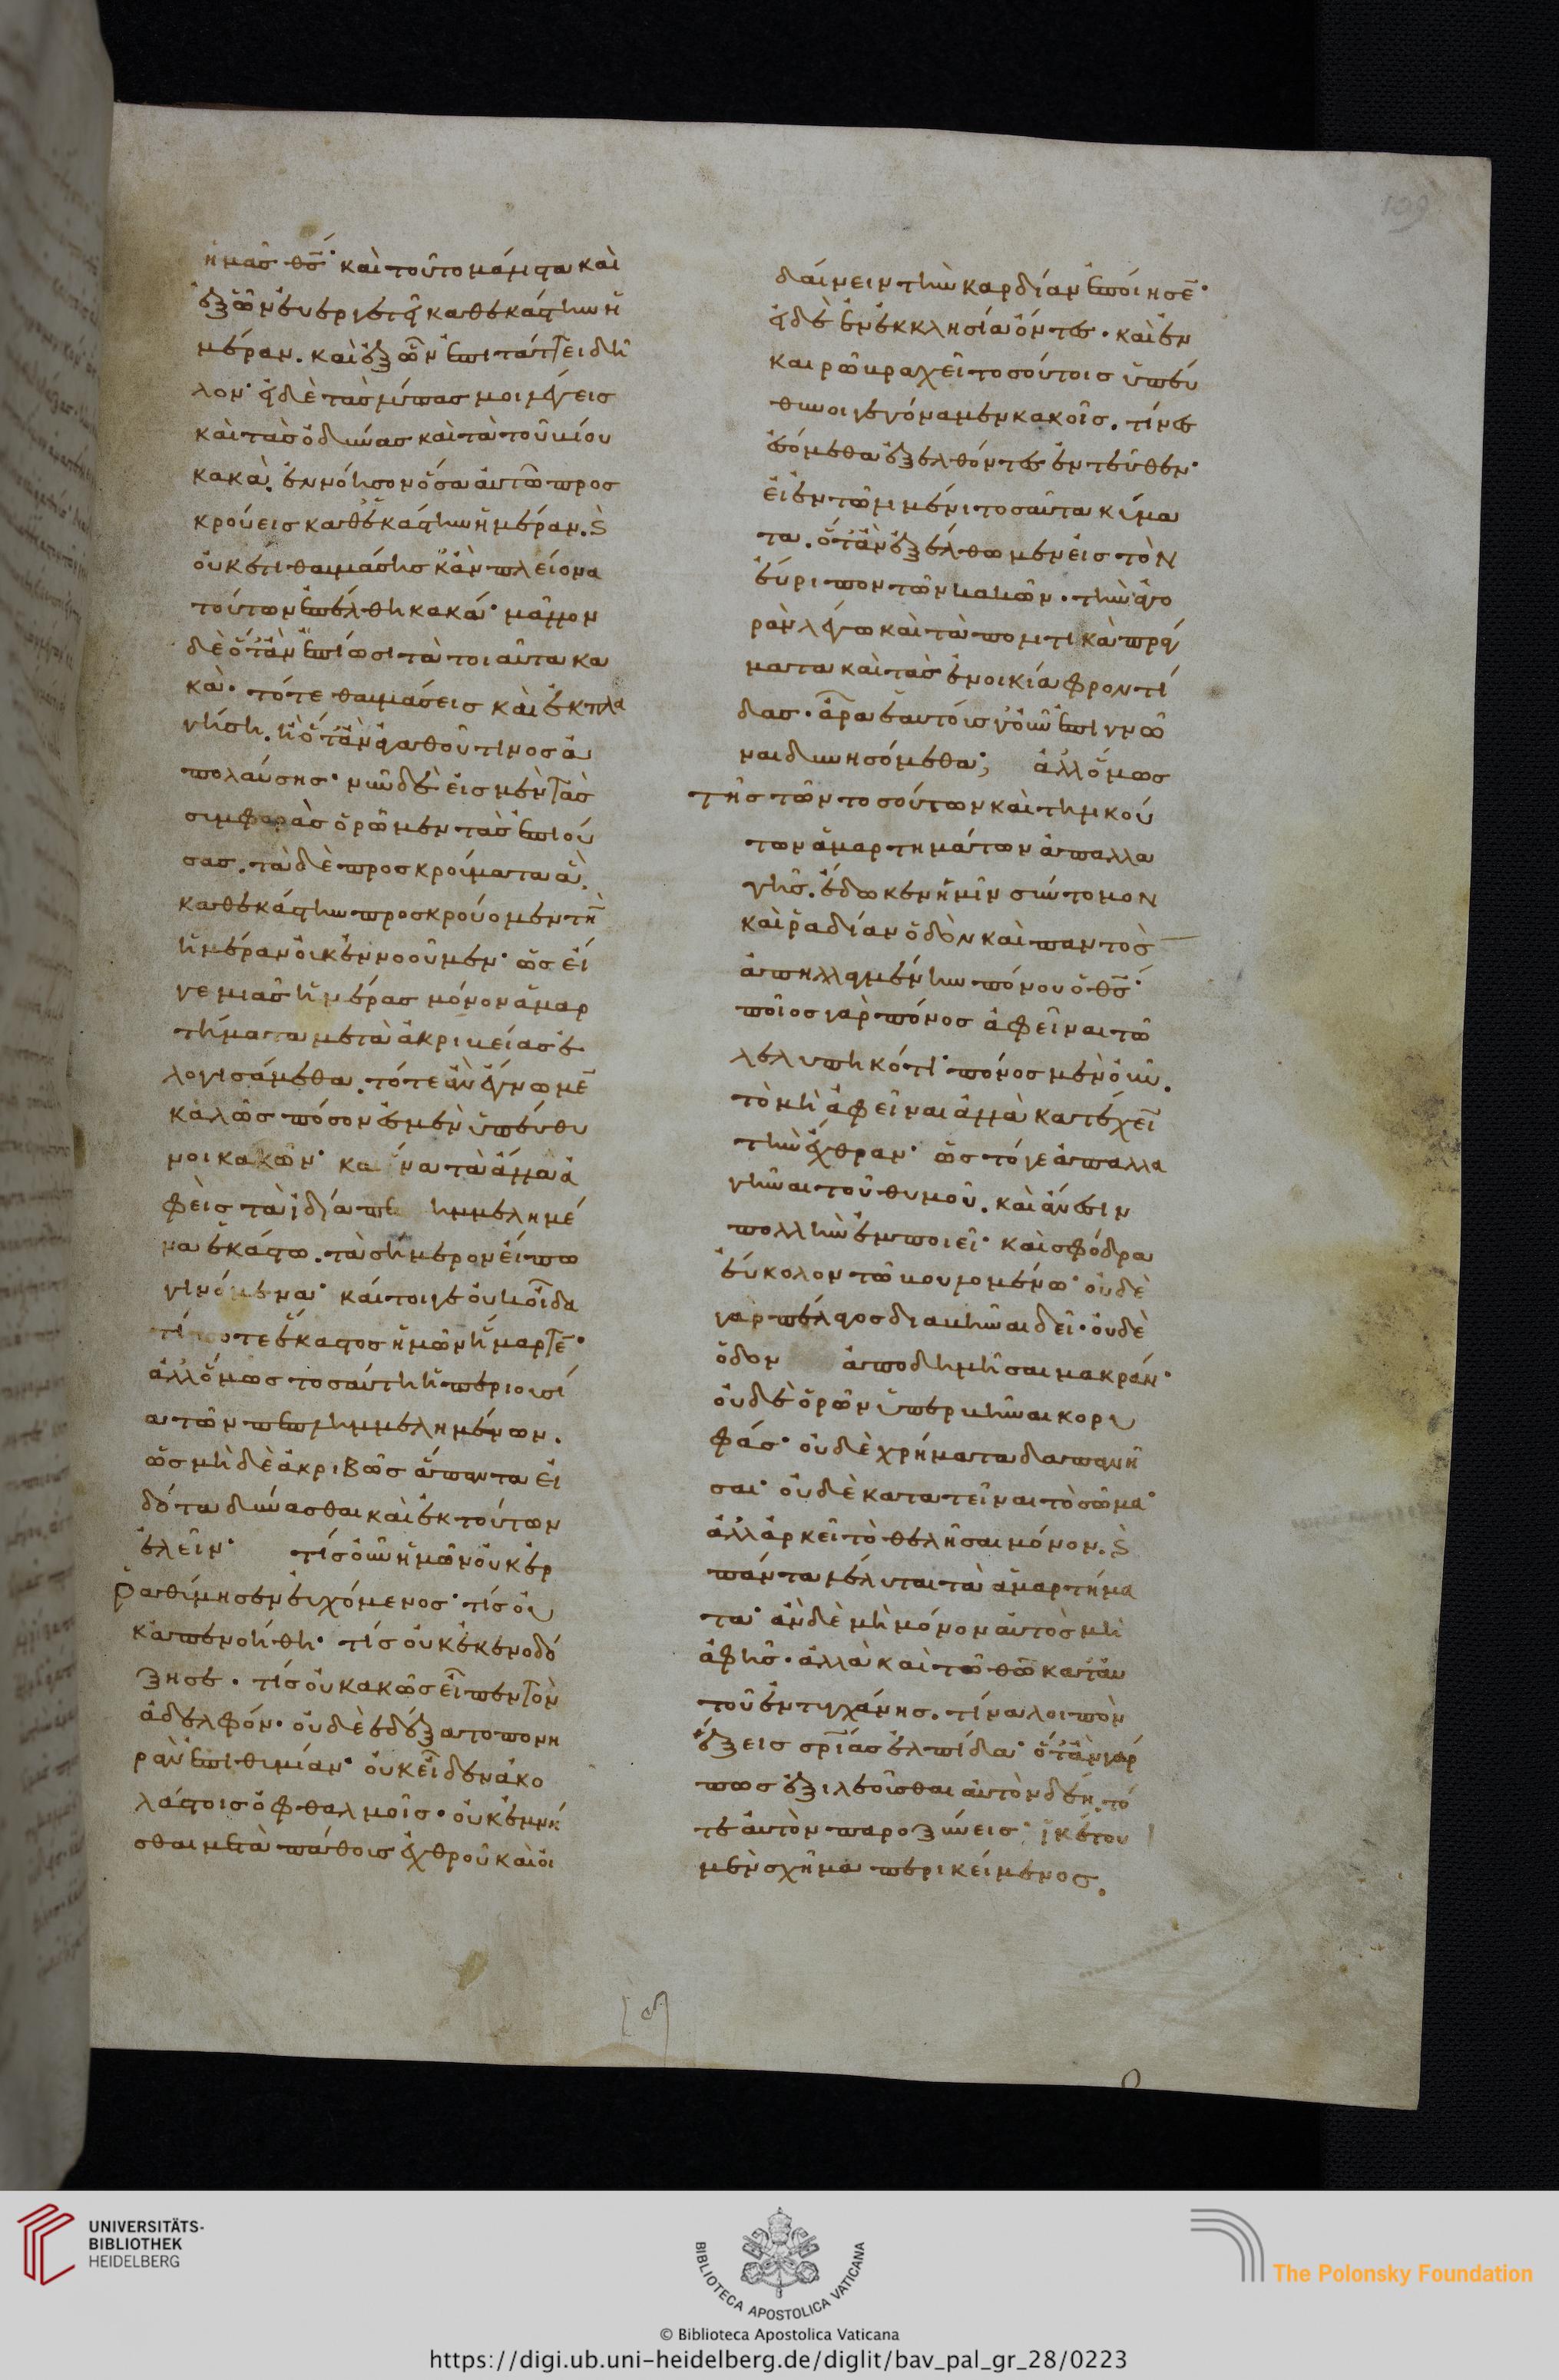 ἡμᾶς θς· καὶ τοῦτο μάλιστα καὶ
ἐξ ὧν εὐεργετεῖ καθεκάστην ἡ
μέραν. καὶ ἐξ ὧν ἐπιτάττει δῆ
λον· εἰ δὲ τὰς λύπας μοι λέγεις
καὶ τὰς ὀδύνας καὶ τὰ τοῦ βίου
κακὰ. ἐννόησον ὅσα αὐτῶ προσ
κρούεις καθεκάστην ἡμέραν. καὶ
οὐκ ἔτι θαυμάσης κἂν πλείονα
τούτων ἐπέλθη κακά· μᾶλλον
δὲ ὅταν ἐπίωσι τὰ τοιαῦτα κα
κὰ. τότε θαυμάσεις καὶ ἐκπλα
γήση. ἢ ὅταν ἀγαθοῦ τινος ἀ
πολαύσης· νῦν δὲ εἰς μὲν τὰς
συμφορὰς ὁρῶμεν τὰς ἐπιού
σας. τὰ δὲ προσκρούματα ἃ
καθεκάστην προσκρούομεν τὴν
ἡμέραν οὐκ ἐννοοῦμεν· ὡς εἴ
γε μιᾶς ἡμέρας μόνον ἁμαρ
τήματα μετὰ ἀκριβείας ἐ
λογισάμεθα. τότε ἂν ἔγνωμεν
καλῶς πόσον ἐσμὲν ὑπεύθυ
νοι κακῶν· καὶ ἵνα τὰ ἄλλα ἀ
φεὶς τὰ ἰδία πεπλημμελημέ
να ἑκάστω. τὰ σήμερον εἴπω
γινόμενα· καίτοιγε οὐκ οἶδα
τί ποτε ἕκαστος ἡμῶν ἥμαρτεν·
ἀλλ' ὅμως τοσαύτη ἡ περιουσί
α τῶν πεπλημμελημένων.
ὡς μὴ δὲ ἀκριβῶς ἅπαντα εἰ
δότα δύνασθαι καὶ ἐκ τούτων
ἑλεῖν· τίς οὖν ἡμῶν οὐκ ἐρ
ραθύμησεν εὐχόμενος· τίς οὐ
κ ἀπενοήθη· τίς οὐκ ἐκενοδό
ξησε. τίς οὐ κακῶς εἶπεν τὸν
ἀδελφόν· οὐδὲ ἐδέξατο πονη
ρὰν ἐπιθυμίαν· οὐκ εἶδεν ἀκο
λάστοις ὀφθαλμοῖς· οὐκ ἐμνή
σθαι μετὰ πάθους ἐχθροῦ καὶ οἰ
δαίνειν τὴν καρδίαν ἐποίησεν·
εἰ δὲ ἐν ἐκκλησία ὄντες. καὶ ἐν
καιρῶ βραχεῖ τοσούτοις ὑπεύ
θυνοι γεγόναμεν κακοῖς. τίνες
ἐσόμεθα ἐξελθόντες ἐντεῦθεν·
εἰ ἐν τῶ λιμένι τοσαῦτα κύμα
τα. ὅταν ἐξέλθωμεν εἰς τὸν
εὔριπον τῶν κακῶν. τὴν ἀγο
ρὰν λέγω καὶ τὰ πολιτικὰ πράγ
ματα καὶ τὰς ἐν οἰκία φροντί
δας. ἆρα ἑαυτοὺς γοῦν ἐπιγνῶ
ναι δυνησόμεθα; ἀλλ' ὅμως
τῆς τῶν τοσούτων καὶ τηλικού
των ἁμαρτημάτων ἀπαλλα
γῆς. ἔδωκεν ἡμῖν σύντομον
καὶ ῥαδίαν ὁδὸν καὶ παντὸς
ἀπηλλαγμένην πόνου ὁ θς·
ποῖος γὰρ πόνος ἀφεῖναι τῶ
λελυπηκότι· πόνος μὲν οὖν.
τὸ μὴ ἀφεῖναι ἀλλὰ κατέχειν
τὴν ἔχθραν· ὡς τό γε ἀπαλλα
γῆναι τοῦ θυμοῦ. καὶ ἄνεσιν
πολλὴν ἐμποιεῖ· καὶ σφόδρα
εὔκολον τῶ βουλομένω· οὐδὲ
γὰρ πέλαγος διαβῆναι δεῖ· οὐδὲ
ὁδὸν ἀποδημῆσαι μακράν·
οὐδὲ ὀρῶν ὑπερβῆναι κορυ
φάς· οὐδὲ χρήματα δαπανῆ
σαι· οὐδὲ κατατεῖναι τὸ σῶμα·
ἀλλ' ἀρκεῖ τὸ θελῆσαι μόνον. καὶ
πάντα λέλυται τὰ ἁμαρτήμα
τα· ἂν δὲ μὴ μόνον αὐτὸς μὴ
ἀφῆς. ἀλλὰ καὶ τῶ θῶ κατ' αὐ
τοῦ ἐντυγχάνης. τίνα λοιπὸν
ἕξεις σρίας ἐλπίδα· ὅταν γάρ
πως ἐξιλεοῦσθαι αὐτὸν δέη. τό
τε αὐτὸν παροξύνεις· ἱκέτου
μὲν σχῆμα περικείμενος.
109
UNIVERSITÄTS-
BIBLIOTHEK
HEIDELBERG
BIBLIOTECA APOSTOLICA VATICANA
The Polonsky Foundation
© Biblioteca Apostolica Vaticana
https://digi.ub.uni-heidelberg.de/diglit/bav_pal_gr_28/0223